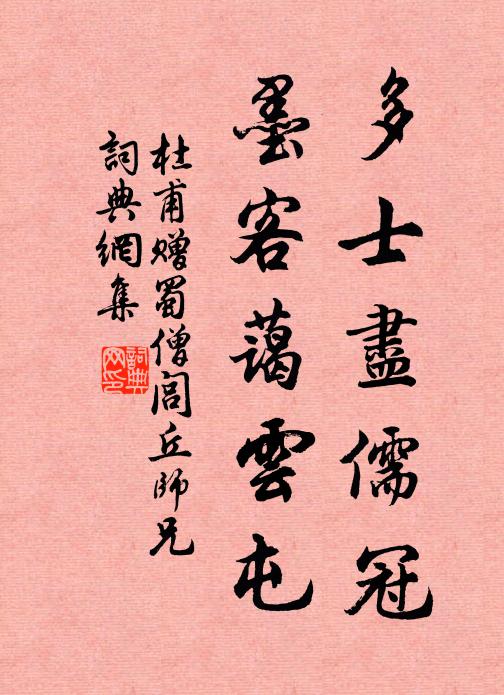 多士盡儒冠
墨客藹雲屯
杜甫贈蜀僧閭丘師兄
詞典網集
詞典
网印